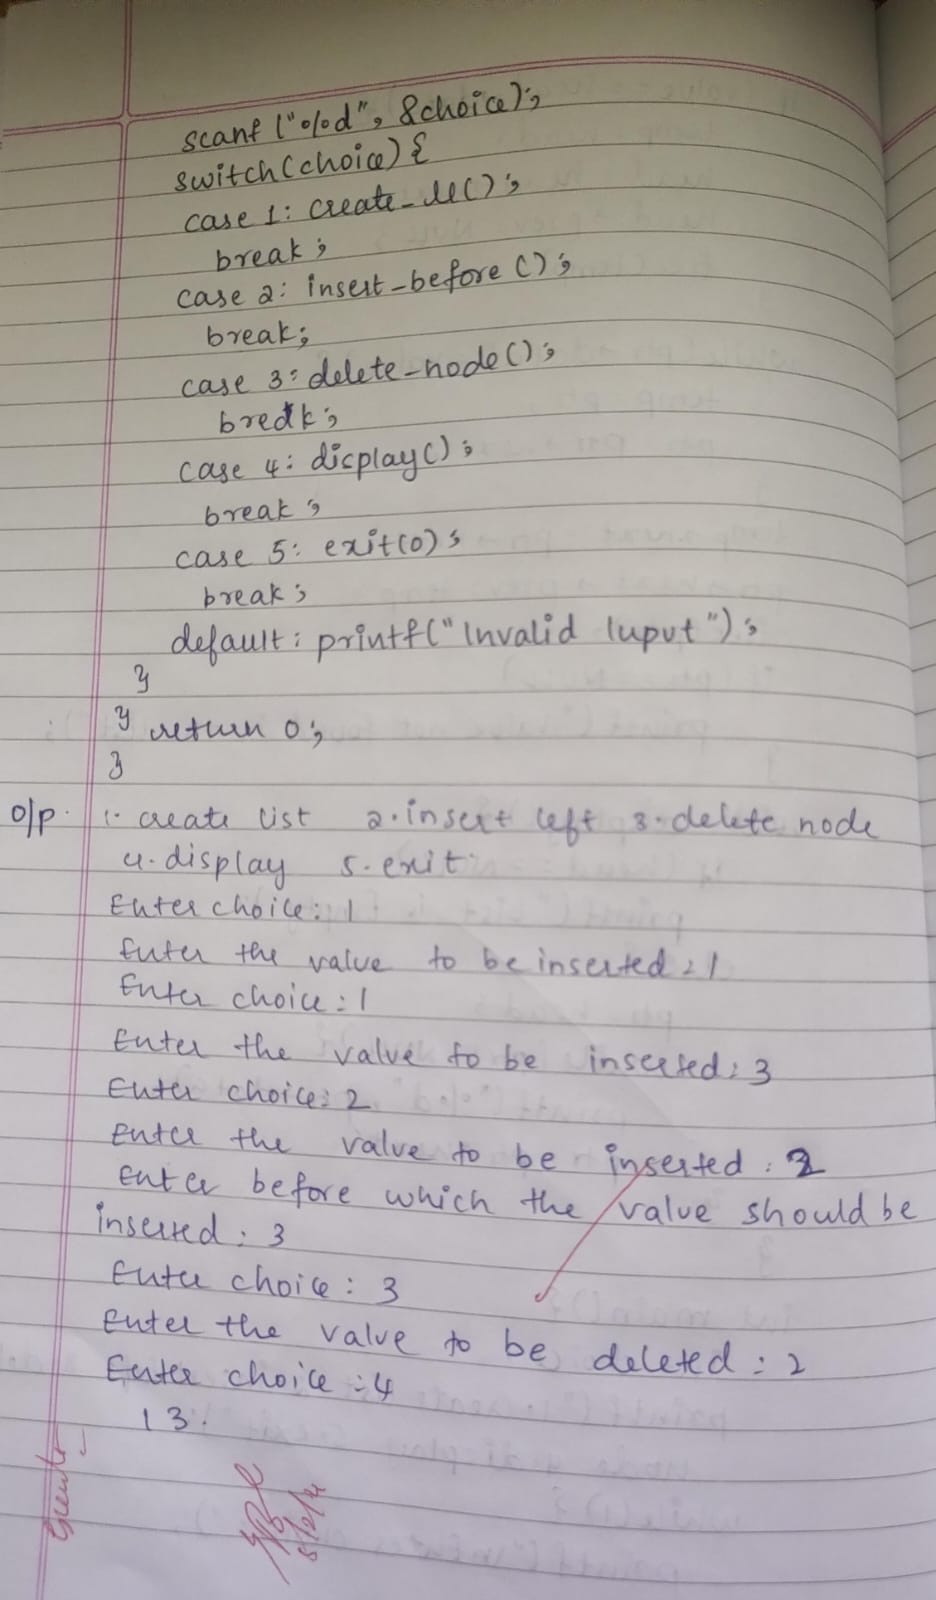 scanf ("%d", &choice);
switch(choice) {
case 1: create_ll();
break;
case 2: insert_before ();
break;
case 3: delete_node();
bredk;
case 4: display();
break;
case 5: exit(0);
break;
default: printf("Invalid Input");
}
} return 0;
}
o/p. 1. create list 2. insert left 3. delete node
4. display 5. exit
Enter choice: 1
Enter the value to be inserted: 1
Enter choice: 1
Enter the value to be inserted: 3
Enter choice: 2
Enter the value to be inserted: 2
Enter before which the value should be
inserted: 3
Enter choice: 3
Enter the value to be deleted: 2
Enter choice: 4
1 3.